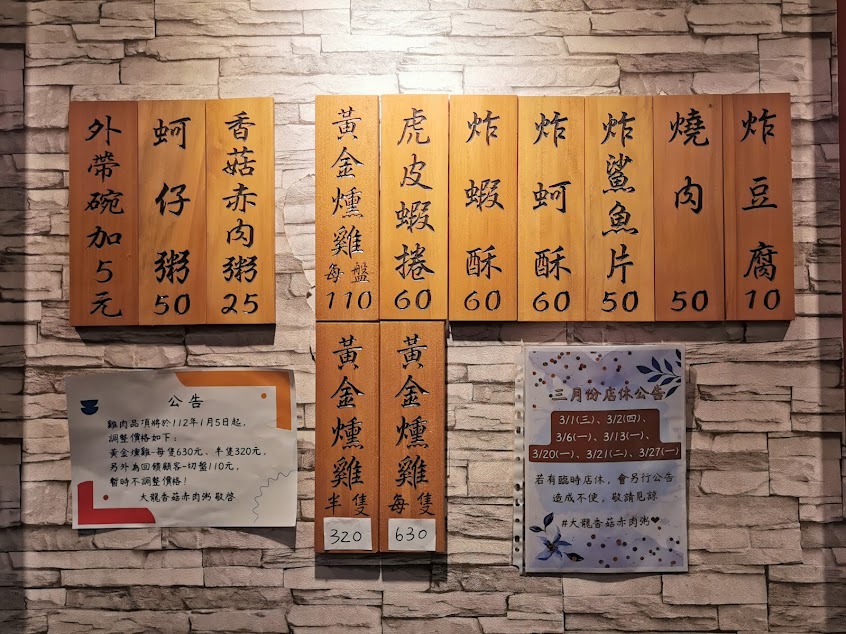 炸豆腐10
燒肉50
炸鯊魚片50
炸蚵酥60
炸蝦酥60
虎皮蝦捲60
黃金燻雞每盤110
香菇赤肉粥25
蚵仔粥50
外帶碗加5元
黃金燻雞每隻630
黃金燻雞半隻320
公告
雞肉品項將於112年1月5日起,
調整價格如下:
黃金燻雞-每隻630元、半隻320元,
另外為回饋顧客-切盤110元,
暫時不調整價格!
大龍香菇赤肉粥 敬啓
三月份店休公告
3/1(三)、3/2(四)、
3/6(一)、3/13(一)、
3/20(一)、3/21(二)、3/27(一)
若有臨時店休,會另行公告
造成不便,敬請見諒
#大龍香菇赤肉粥❤